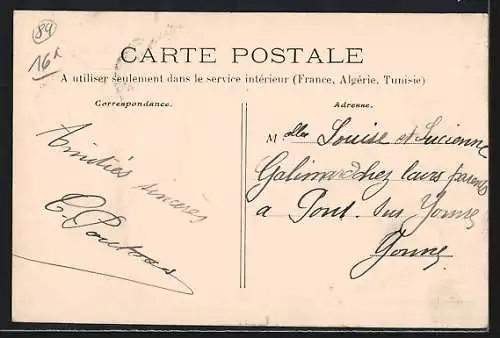 89
16x
CARTE POSTALE
A utiliser seulement dans le service intérieur (France, Algérie, Tunisie)
Correspondance.
Amitiés
sincères
Adresse.
M elles Louise et Lucienne
chez leurs parents
a Pont sur Yonne
Yonne